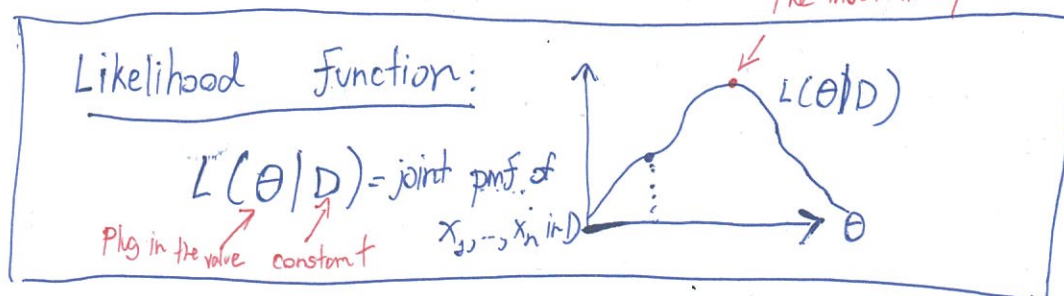 Likelihood function:
L(θ|D)
L(θ|D) = joint pmf. of
x₁, ..., xₙ in D
θ
Plug in the value constant